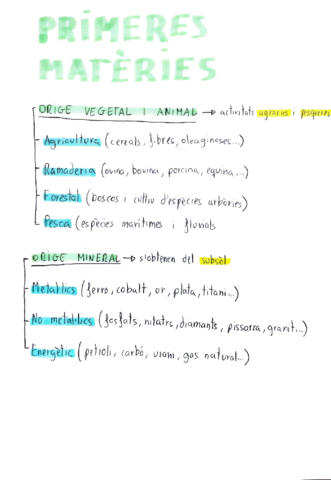 PRIMERES
MATÈRIES
ORIGE VEGETAL I ANIMAL → activitats agràries i pesqueres
Agricultura (cereals, fibres, oleaginoses...)
Ramaderia (ovina, bovina, porcina, equina...)
Forestal (boscos i cultiu d'espècies arbòries)
Pesca (espècies marítimes i fluvials
ORIGE MINERAL → s'obtenen del subsòl
Metàl·lics (ferro, cobalt, or, plata, titani...)
No metàl·lics (fosfats, nitatrs, diamants, pissarra, granit...)
Energètic (petroli, carbó, urani, gas natural...)